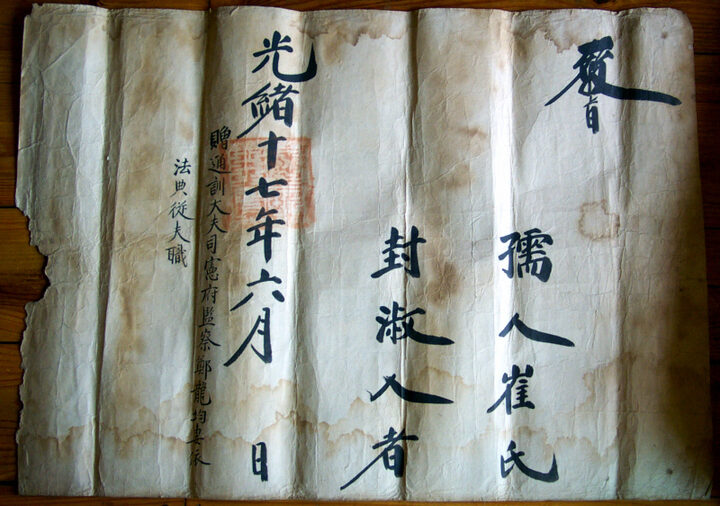 敎旨
孺人崔氏
封淑人者
光緖十七年六月 日
贈通訓大夫司憲府監察鄭龍均妻依
法典從夫職